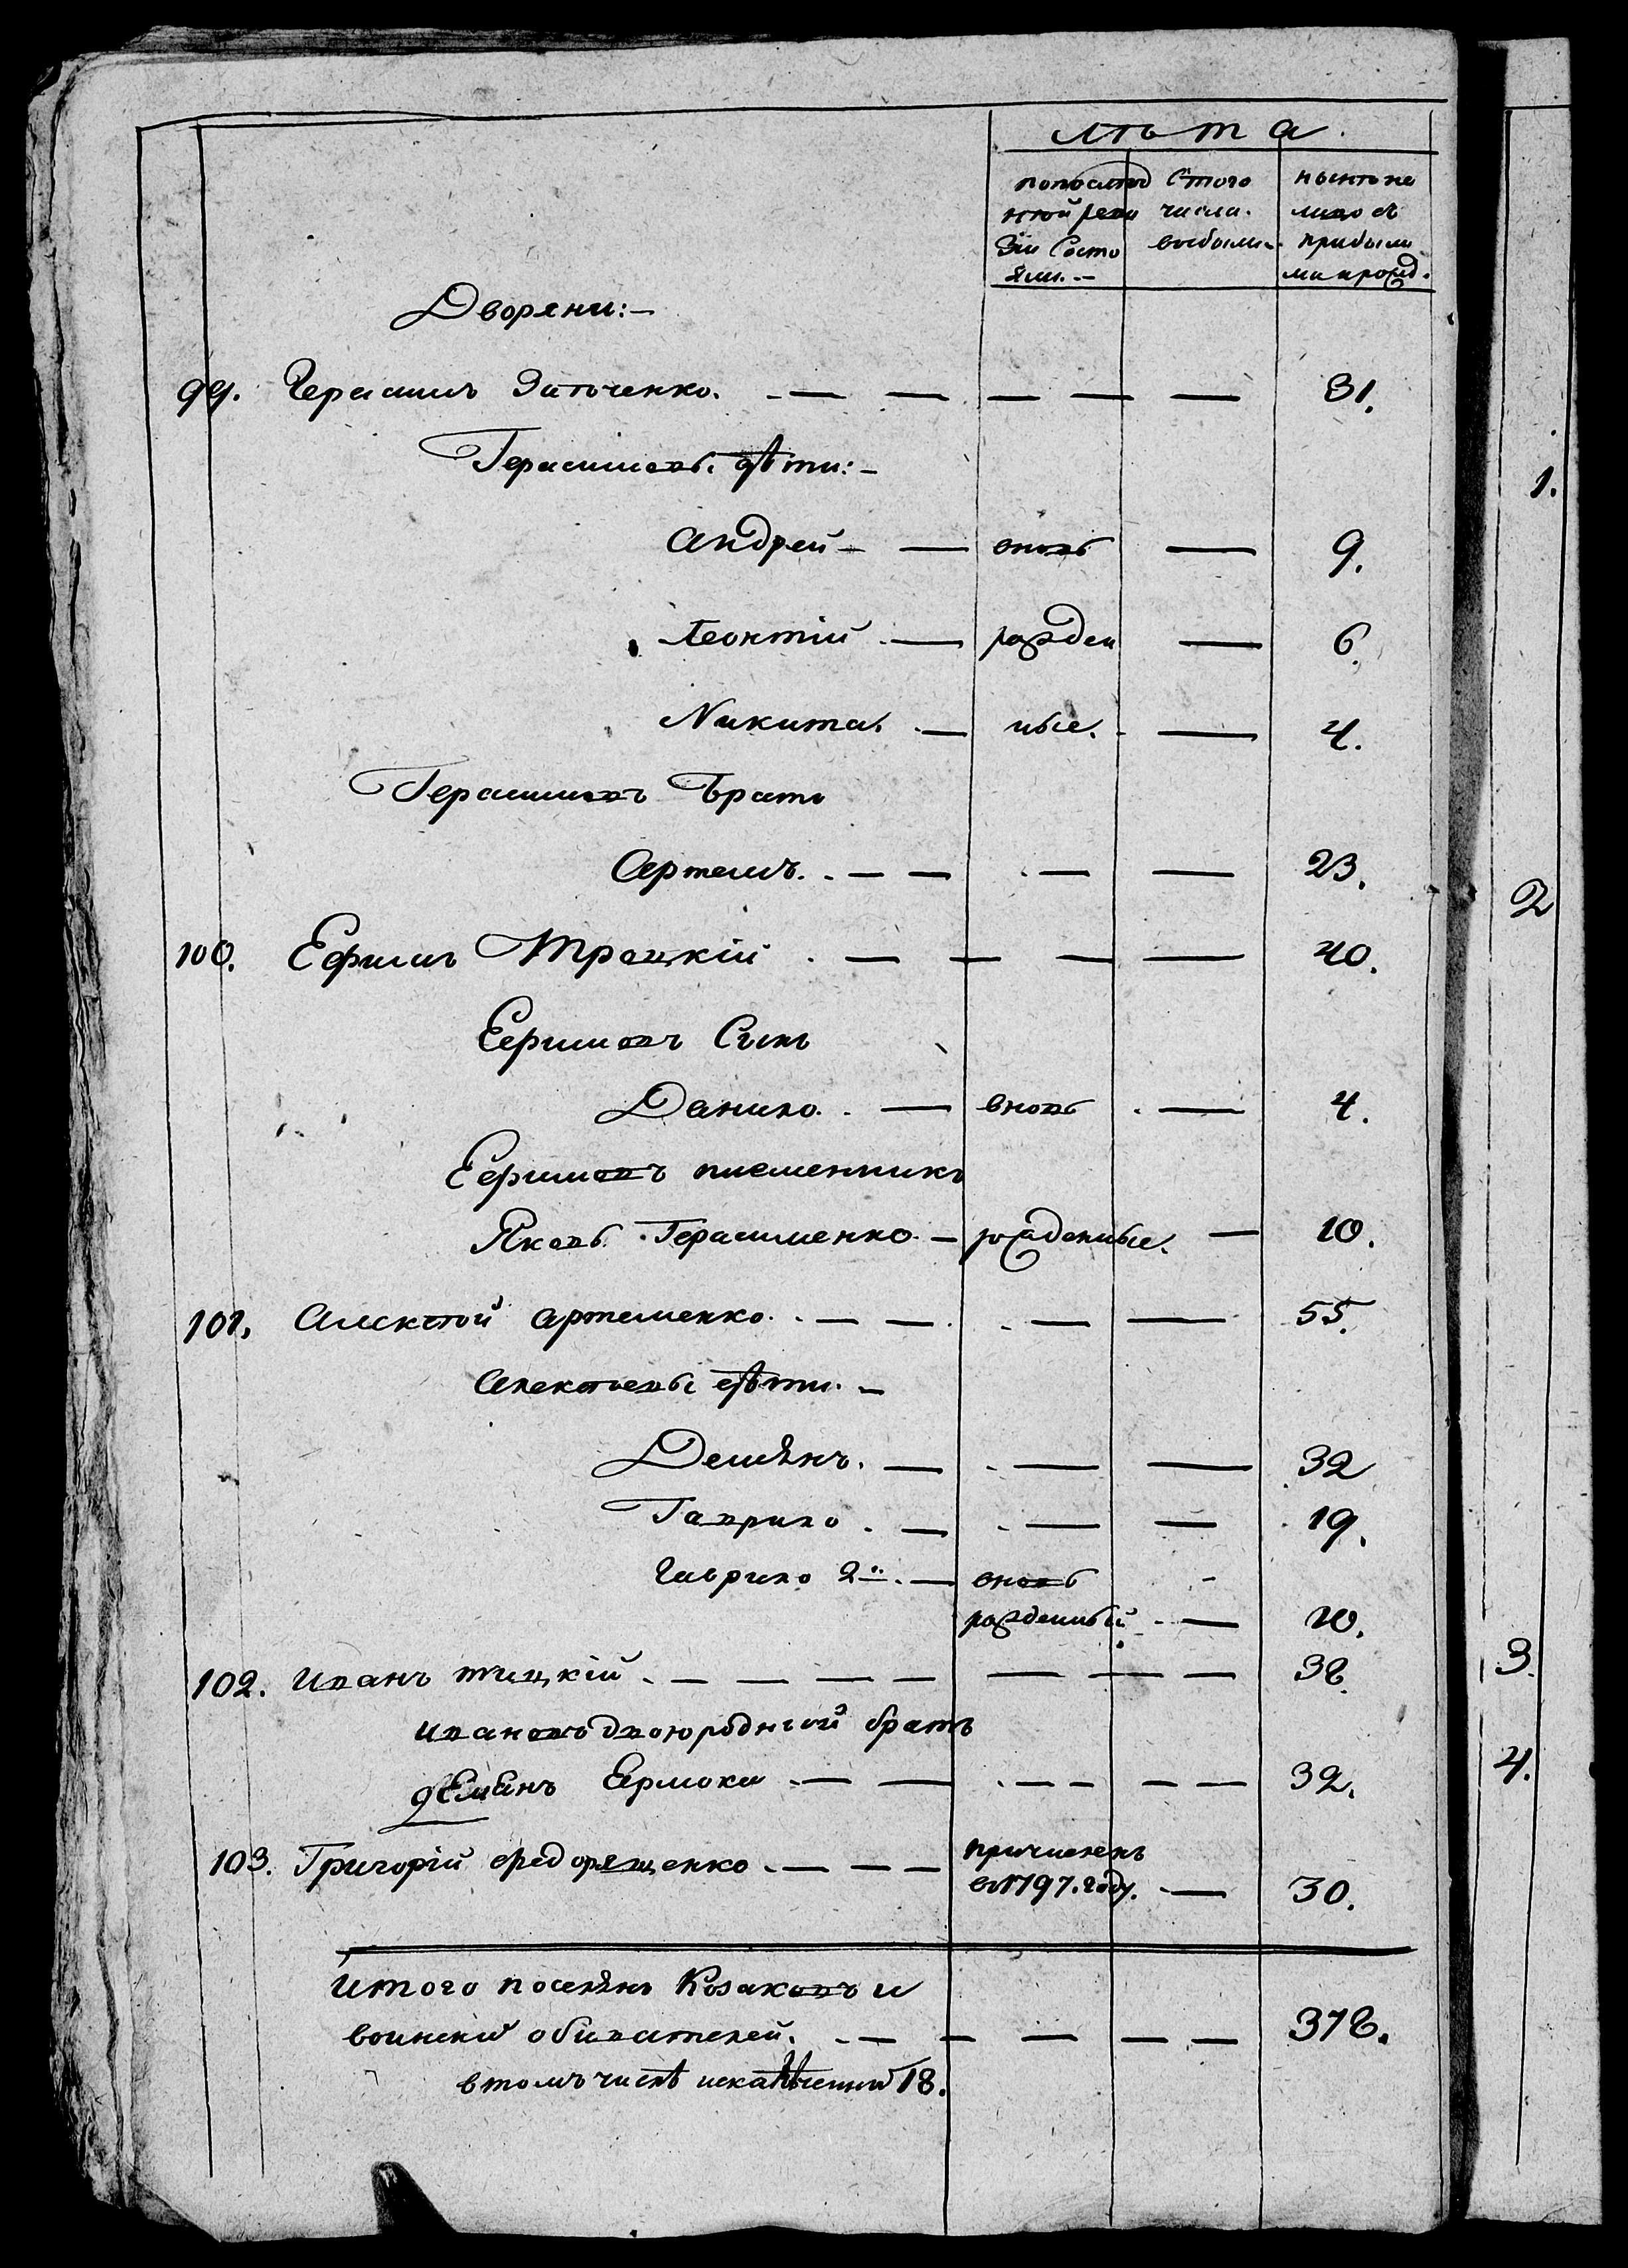 лѣта.
попослѣд стого нынѣ на
нѣй реви числа. лицо съ
зіи Состо выбыли. прибылы
яли.– ми и рожд.
Дворяни:–
99. Герасимъ Затченко. – 31.
Герасимовы дѣти:–
Андрей – вновь – 9.
Леонтій – рожден – 6.
Никита. – ные. – 4.
Герасимовъ Братъ
Артемъ. – 23.
100. Ефимъ Троцкій – 40.
Ефимовъ Сынъ
Данило. – вновь – 4.
Ефимовъ племенникъ
Яковъ Герасименко – рожденные. – 10.
101. Алексѣй Артеменко. – 55.
Алексѣевы дѣти. –
Демянъ. – 32
Гаврило. – 19.
Гаврило 2й. – вновь –
рожденный – 10.
102. Иванъ тицкій. – 38.
Ивановъ двоюродный братъ
демянъ Ермока – 32.
103. Григорій Федорященко – причисленъ
в 1797. году. – 30.
Итого поселянъ Козаковъ и
воинскихъ обивателей. – 378.
в томъ числѣ искалѣченихъ 18.
1.
2
3.
4.